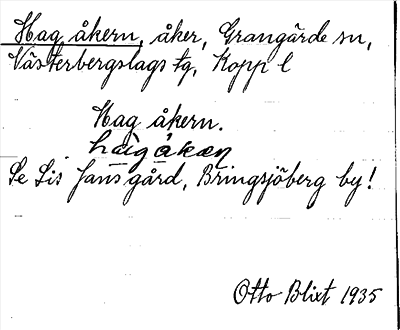 Hag åkern, åker, Grangärde sn,
Västerbergslags tg, Kopp l
Hag åkern.
Se Lis Jans gård, Bringsjöberg by!
Otto Blixt 1935